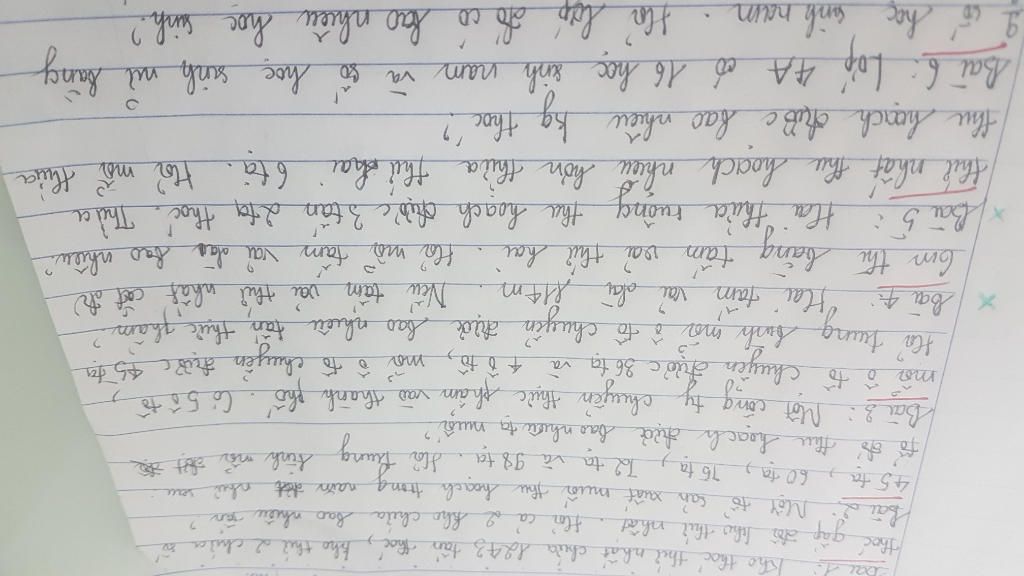 Bài 1: Kho thóc thứ nhất chứa 1243 tấn thóc, kho thứ 2 chứa số
thóc gấp đôi kho thứ nhất. Hỏi cả 2 kho chứa bao nhiêu tấn?
Bài 2: Một tổ sản xuất muối thu hoạch trong năm như sau:
45 tạ, 60 tạ, 75 tạ, 72 tạ và 98 tạ. Hỏi trung bình mỗi
tổ đó thu hoạch được bao nhiêu tạ muối?
Bài 3: Một công ty chuyển thực phẩm vào thành phố. Có 5 ô tô,
mỗi ô tô chuyển được 36 tạ và 4 ô tô, mỗi ô tô chuyển được 45 tạ.
Hỏi trung bình mỗi ô tô chuyển được bao nhiêu tấn thực phẩm.
Bài 4: Hai tấm vải dài 114m. Nếu tấm vải thứ nhất cắt đi
6m thì bằng tấm vải thứ hai. Hỏi mỗi tấm vải dài bao nhiêu?
Bài 5: Hai thửa ruộng thu hoạch được 3 tấn 2 tạ thóc. Thửa
thứ nhất thu hoạch nhiều hơn thửa thứ hai 6 tạ. Hỏi mỗi thửa
thu hoạch được bao nhiêu kg thóc?
Bài 6: Lớp 4A có 16 học sinh nam và số học sinh nữ bằng
số học sinh nam. Hỏi lớp đó có bao nhiêu học sinh?